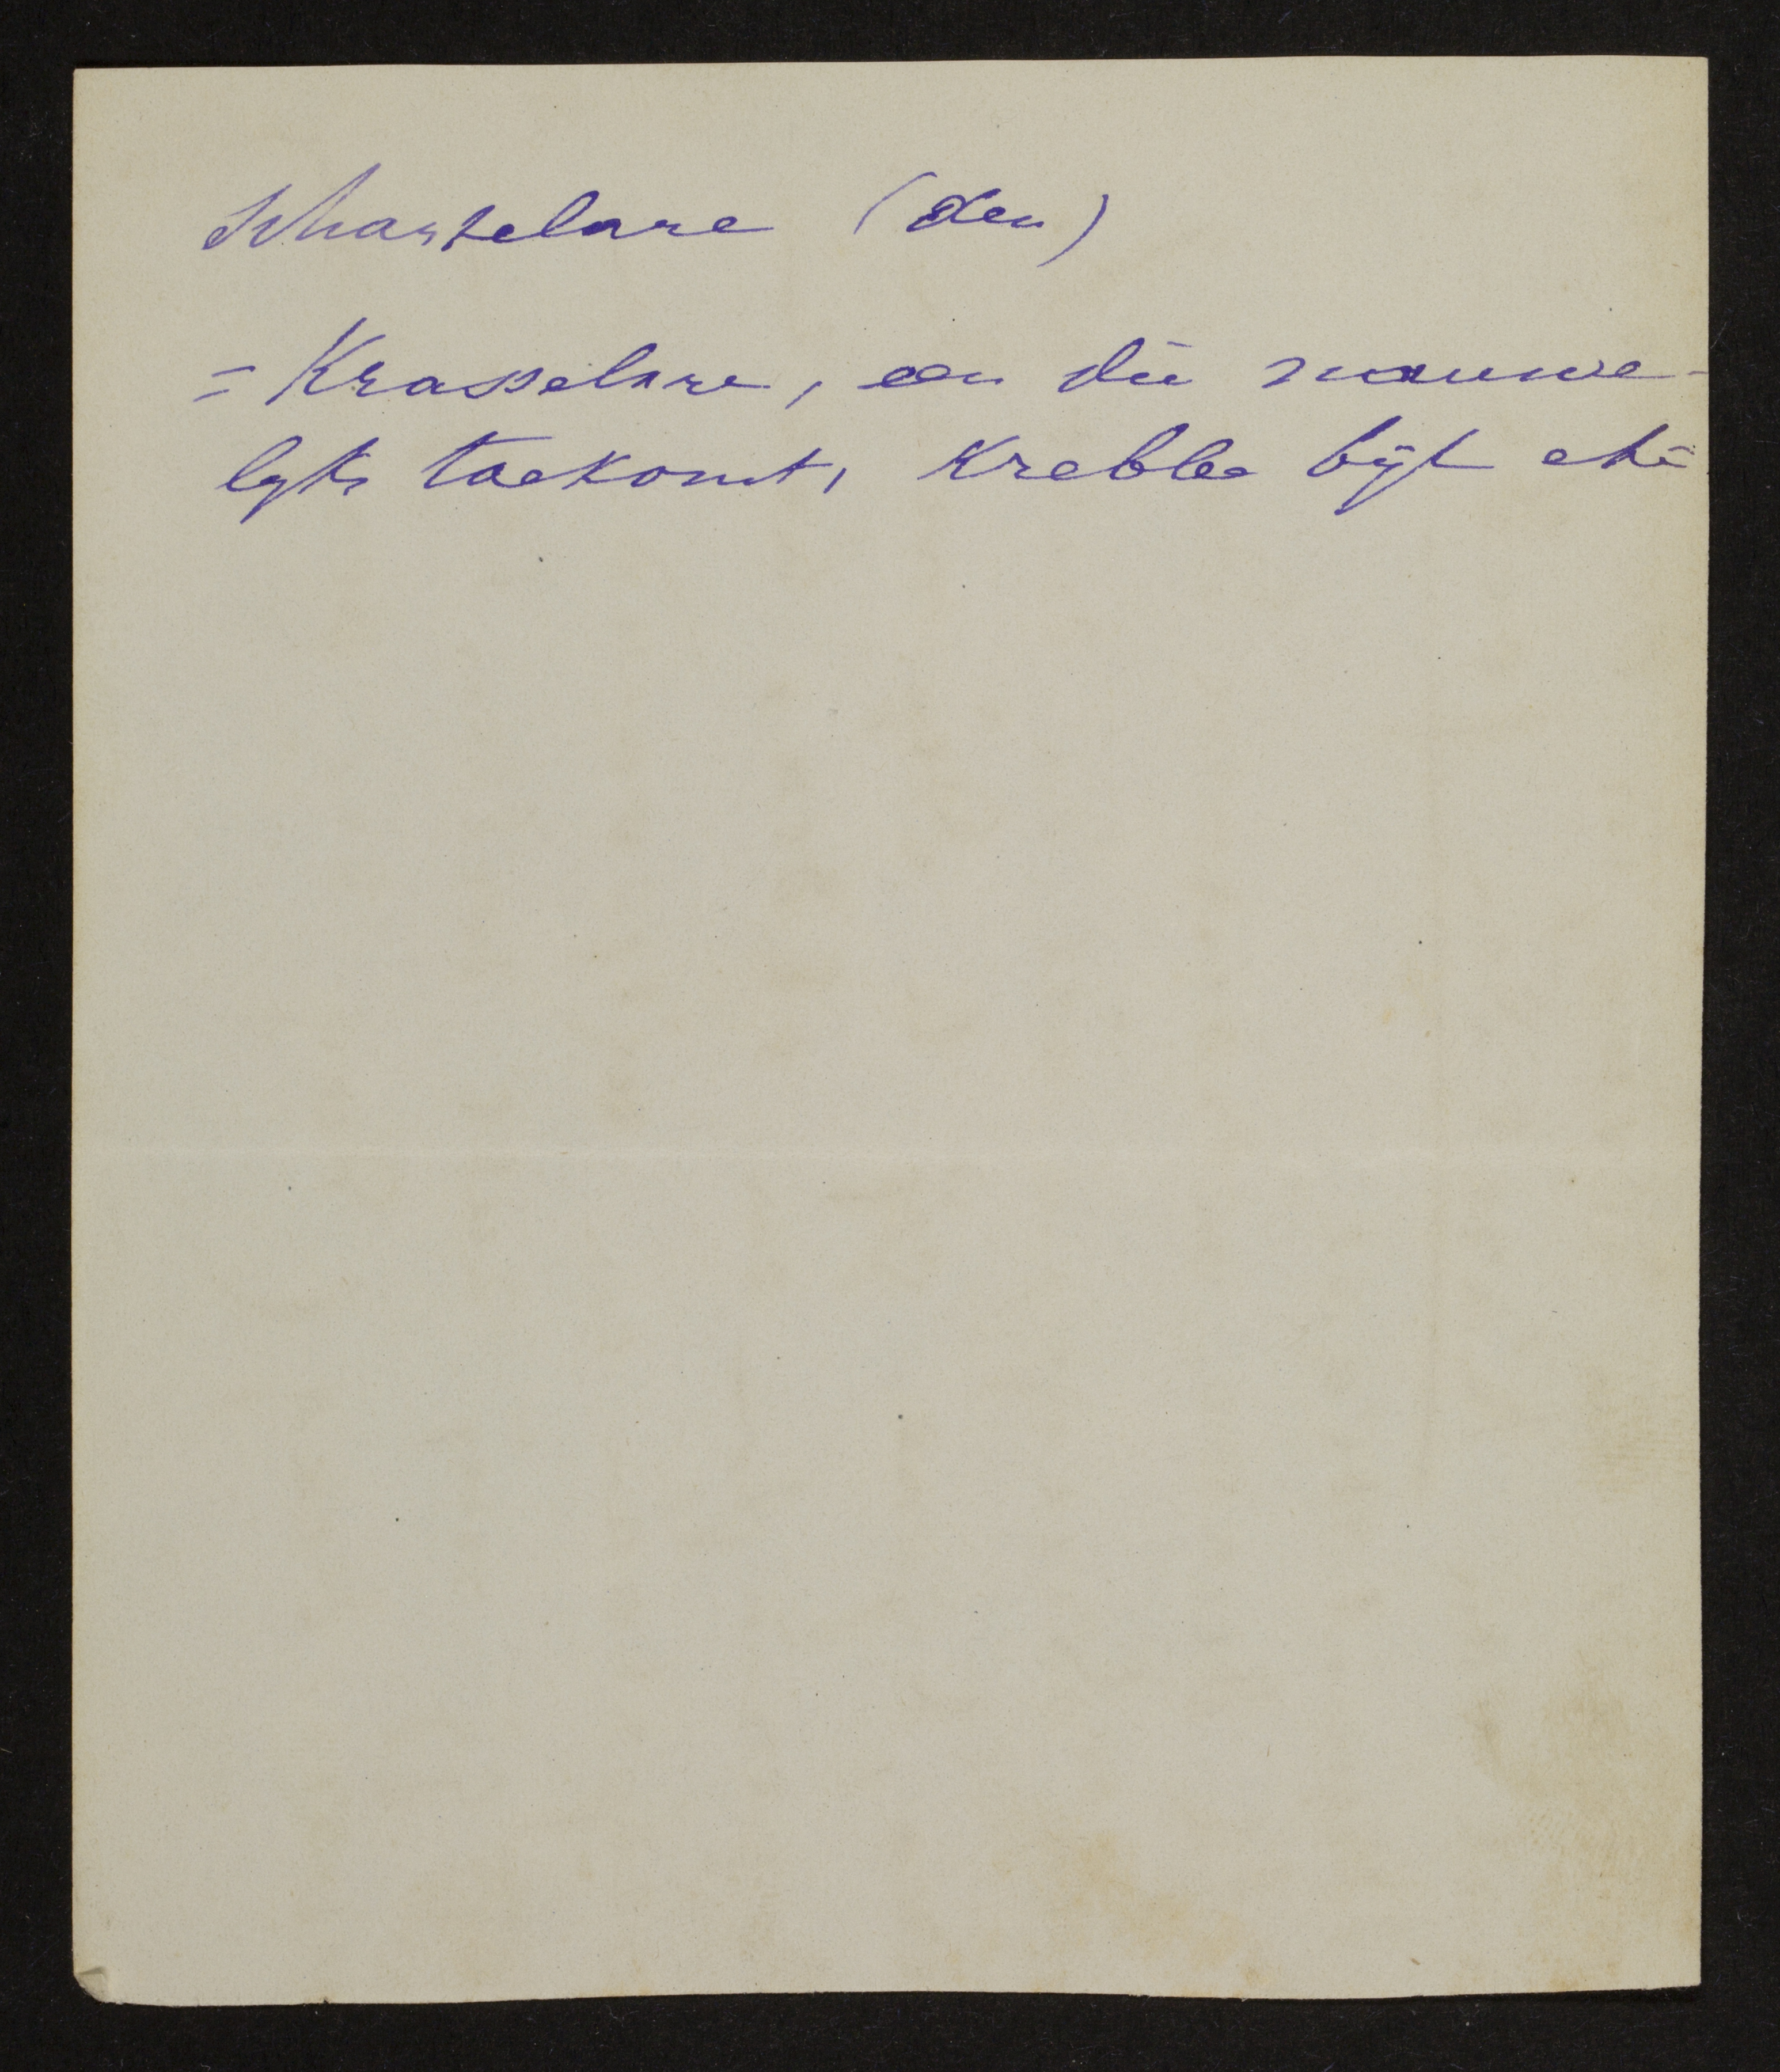 Schartelare (den)
= Krasselare, een die nauwe-
lyks toekomt, krebbe bijt etc